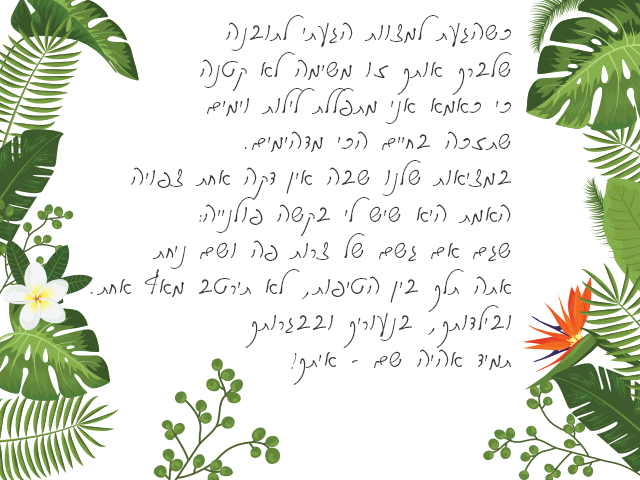 כשהגעת למצוות הגעתי לתובנה
שלברך אותך זו משימה לא קטנה
כי כאמא אני מתפללת לילות וימים
שתזכה בחיים הכי מדהימים.
במציאות שלנו שבה אין דקה אחת צפויה
האמת היא שיש לי בקשה פולנייה:
שגם אם גשם של צרות פה ושם ניחת
אתה תלך בין הטיפות, לא תירטב מאף אחת.
ובילדותך, בנעוריך ובבגרותך
תמיד אהיה שם - איתך!